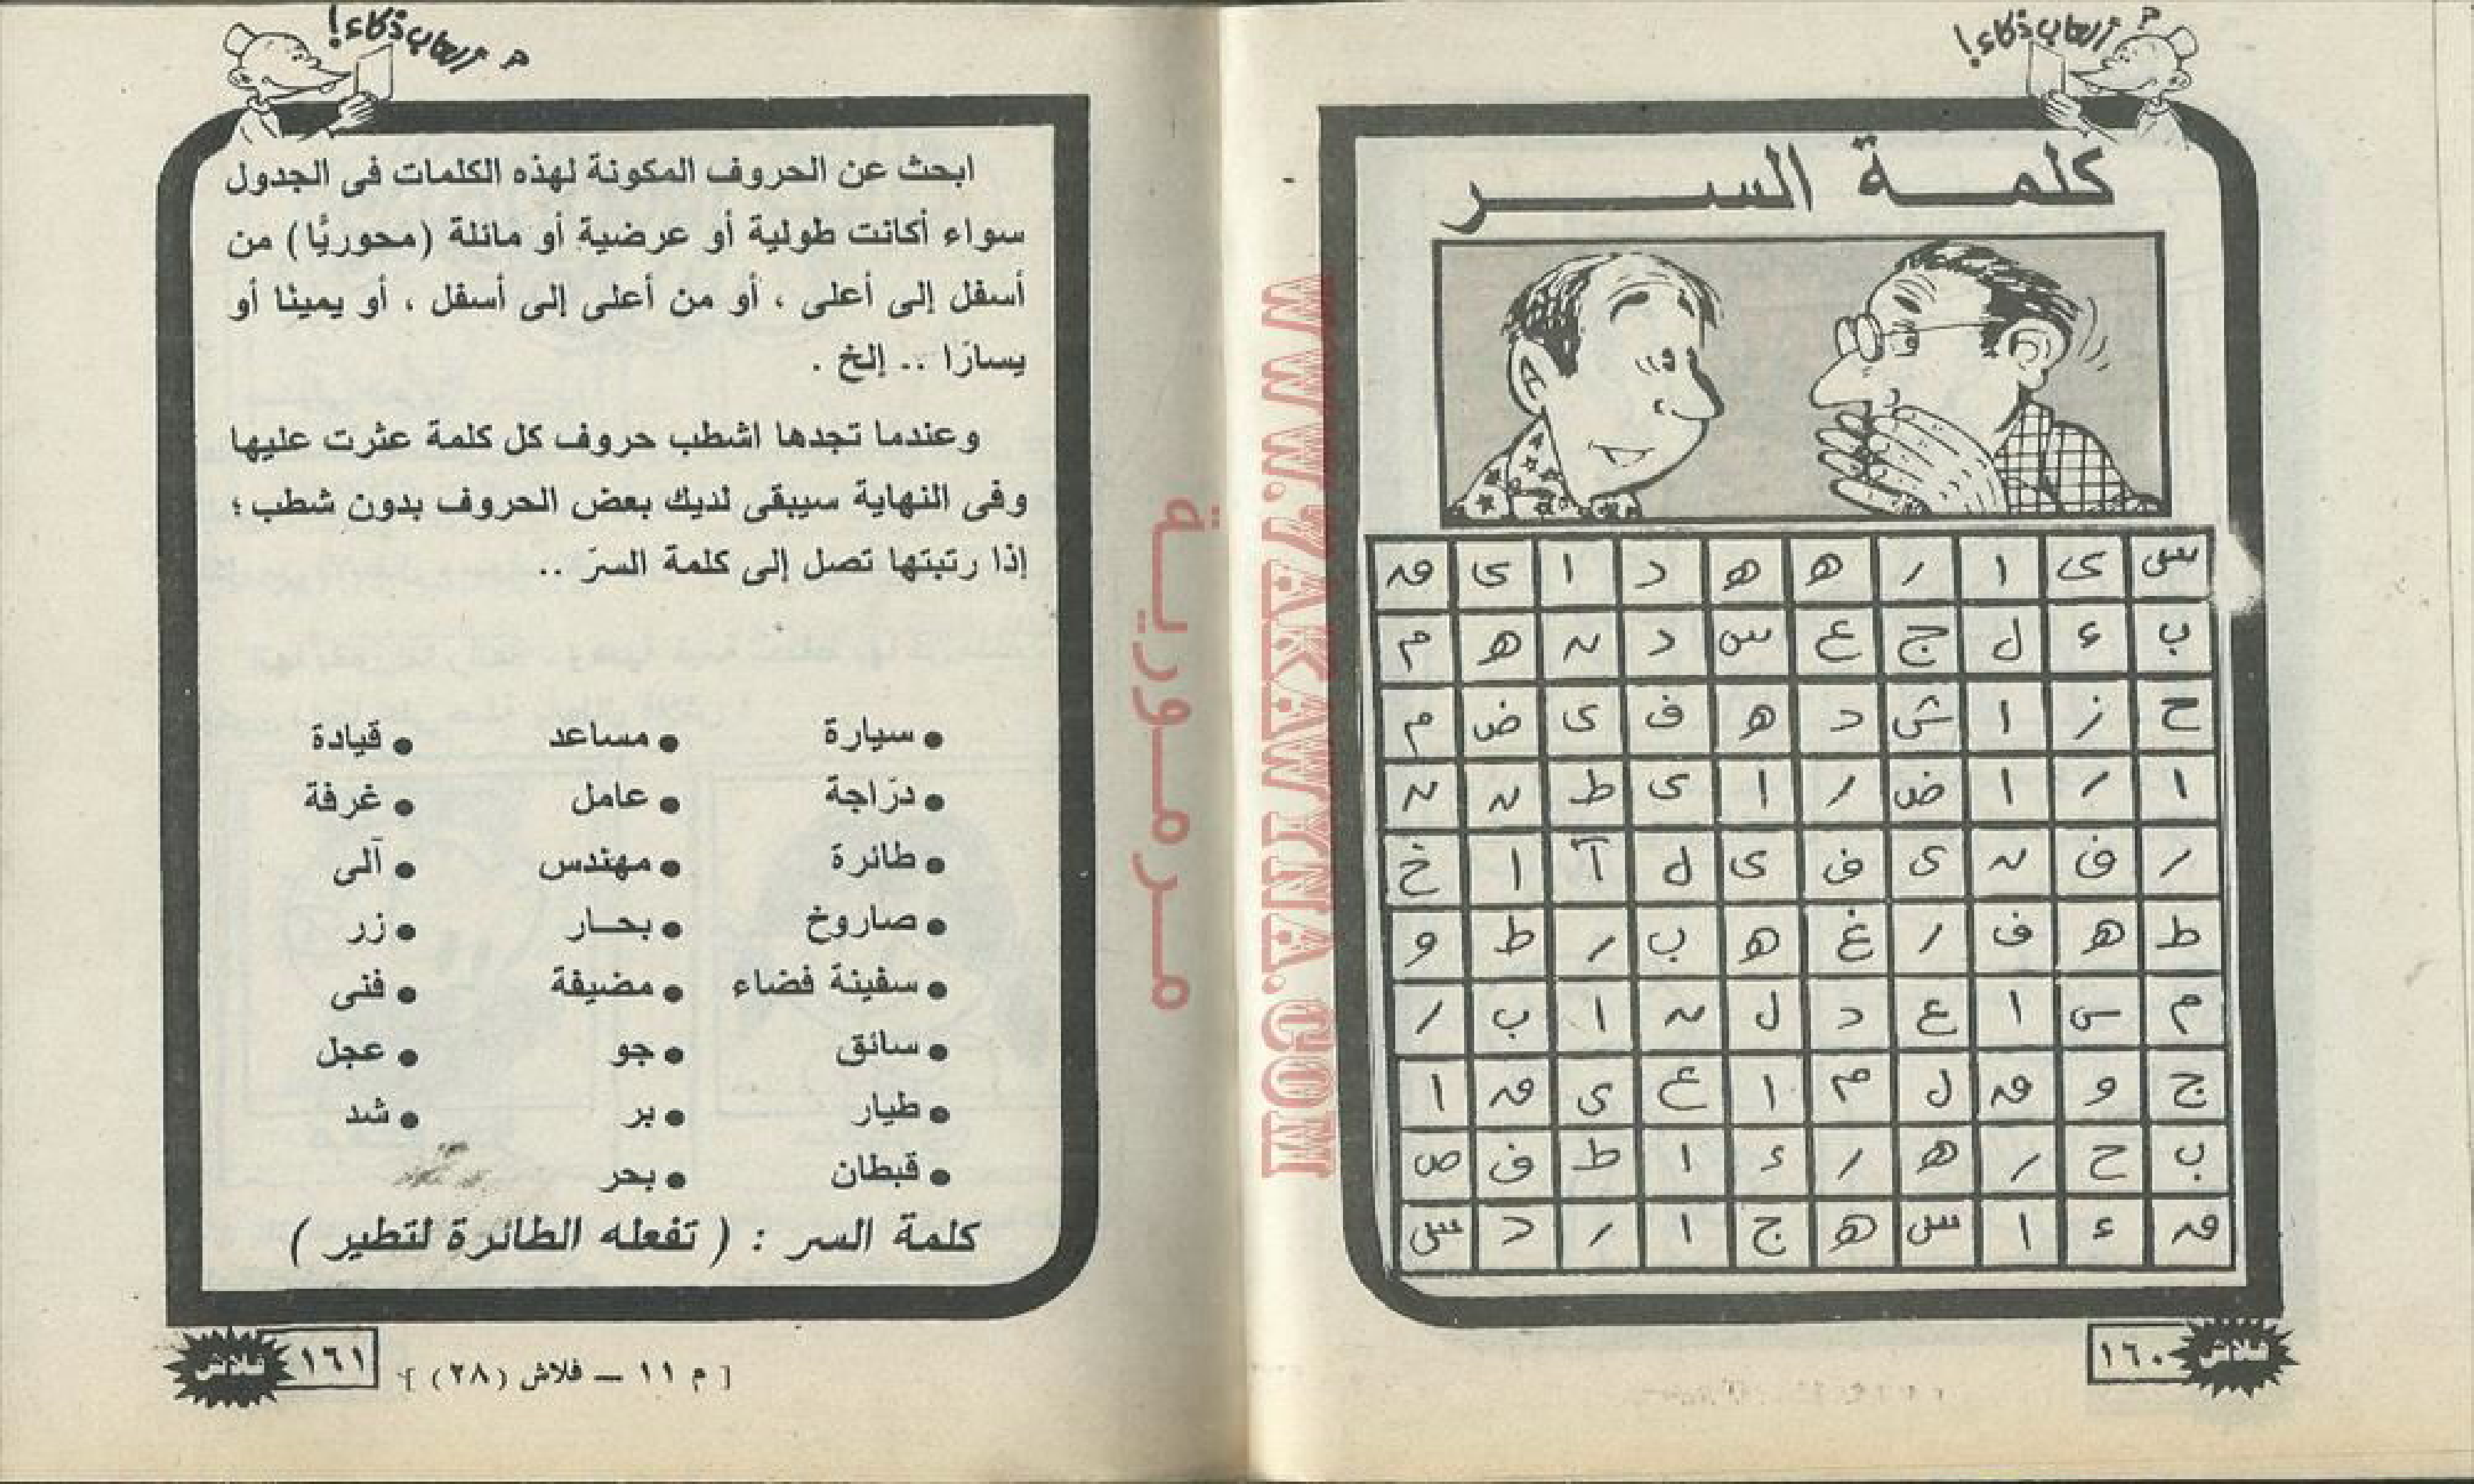 ألعاب ذكاء!
كلمة السر
س ى ا ر ه ه د ا ى ق
ب ء ل ج ع س د ن ه م
ح ز ا ش د ه ف ى ض م
ا ر ا ض ر ا ى ط ن ن
ر ف ن ى ف ى ل آ ا خ
ط ه ف ر غ ه ب ر ط و
م س ا ع د ل ن ا ب ر
ج و ق ل م ا ع ى ق ا
ب ح ر ه ر ء ا ط ف ص
ق ء ا س ه ج ا ر د س
١٦٠
فلاش
WWW.ARAKWYINA.COM
مرمورية
ألعاب ذكاء!
ابحث عن الحروف المكونة لهذه الكلمات فى الجدول
سواء أكانت طولية أو عرضية أو مائلة (محوريًّا) من
أسفل إلى أعلى ، أو من أعلى إلى أسفل ، أو يمينًا أو
يسارًا .. إلخ .
وعندما تجدها اشطب حروف كل كلمة عثرت عليها
وفى النهاية سيبقى لديك بعض الحروف بدون شطب ؛
إذا رتبتها تصل إلى كلمة السرّ ..
• سيارة • مساعد • قيادة
• درّاجة • عامل • غرفة
• طائرة • مهندس • آلى
• صاروخ • بحــار • زر
• سفينة فضاء • مضيفة • فنى
• سائق • جو • عجل
• طيار • بر • شد
• قبطان • بحر
كلمة السر : ( تفعله الطائرة لتطير )
[ م ١١ — فلاش (٢٨) ]
١٦١
فلاش